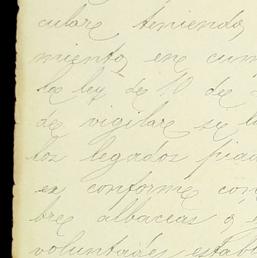 cular teniendo
miento, en cum
la ley de 10 de
de vigilar se
los legados piad
es conforme con
bre albaceas ó
voluntades estab